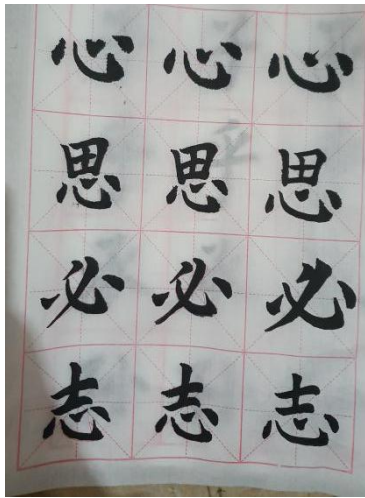 心心心
思思思
必必必
志志志